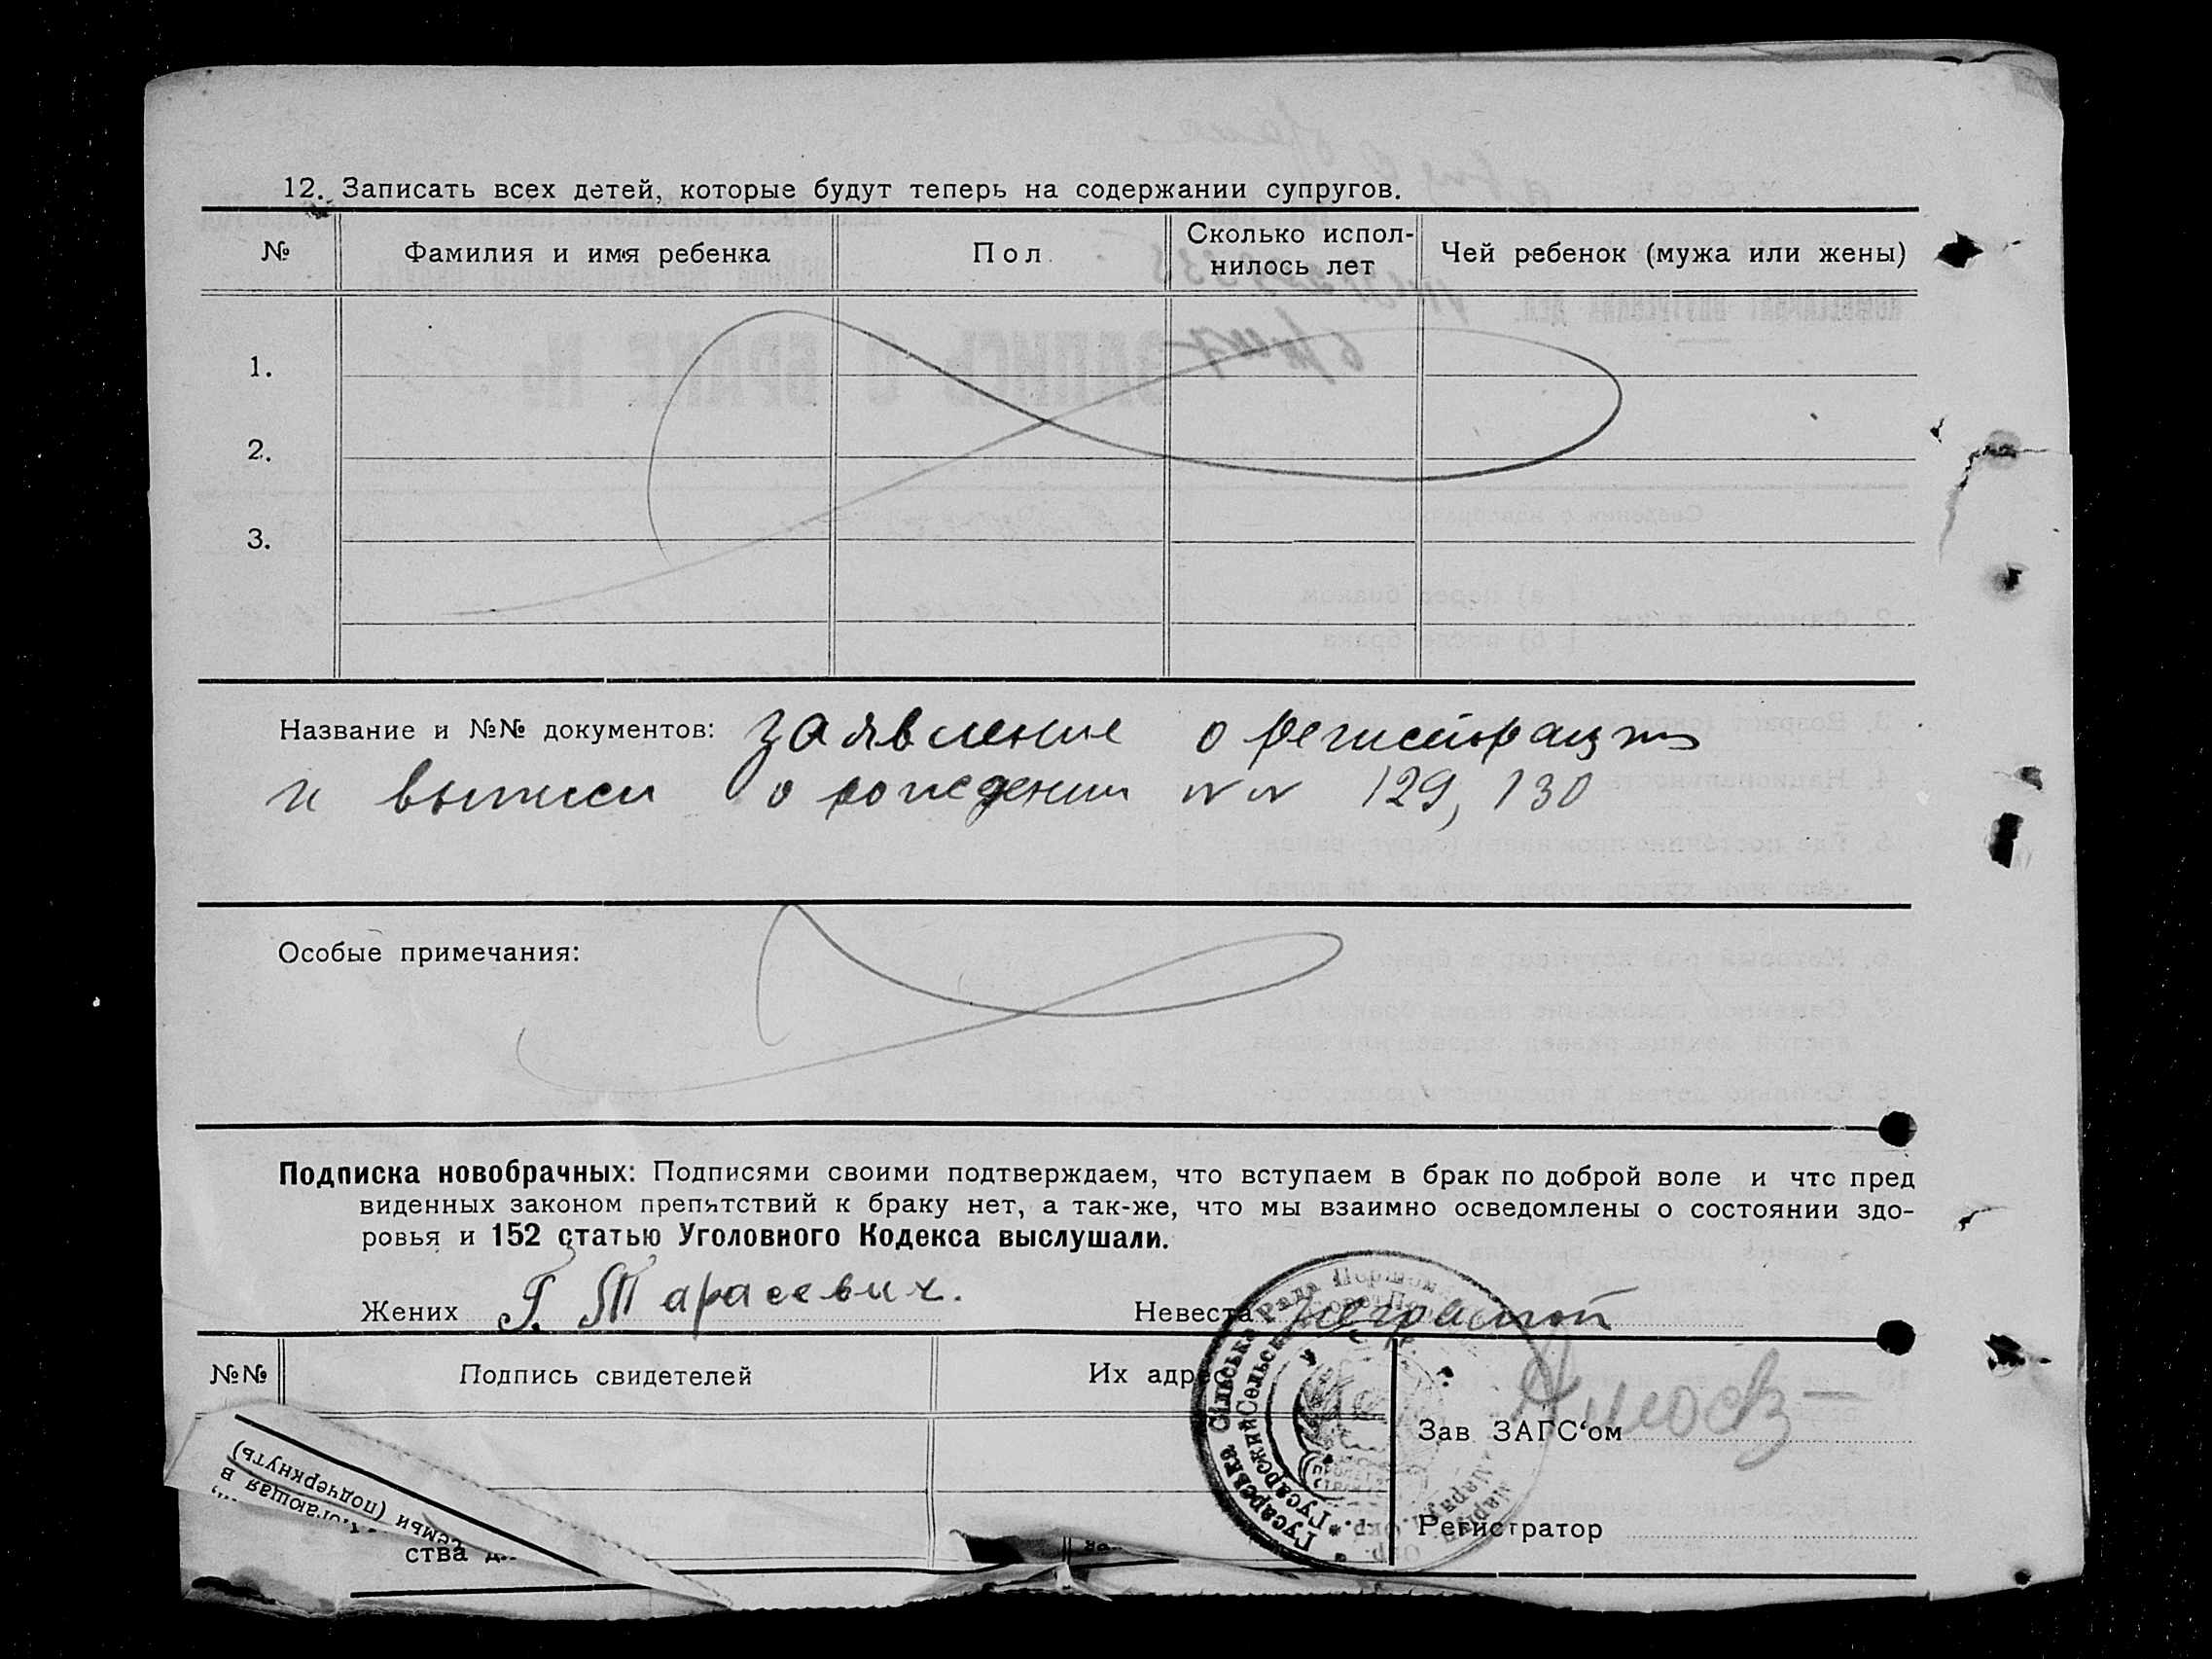 12. Записать всех детей, которые будут теперь на содержании супругов.
№ Фамилия и имя ребенка Пол Сколько испол-нилось лет Чей ребенок (мужа или жены)
1.
2.
3.
Название и №№ документов: заявление о регистрации
и выписи о рождении №№ 129, 130
Особые примечания:
Подписка новобрачных: Подписями своими подтверждаем, что вступаем в брак по доброй воле и что пред
виденных законом препятствий к браку нет, а так-же, что мы взаимно осведомлены о состоянии здо-
ровья и 152 статью Уголовного Кодекса выслушали.
Жених Г. Тарасевич. Невеста неграмот
№№ Подпись свидетелей Их адрес
Зав ЗАГС‘ом
Регистратор
Гусарська Сільська Рада
Гусарский Сельск
семьи (подчеркнуть)
ства